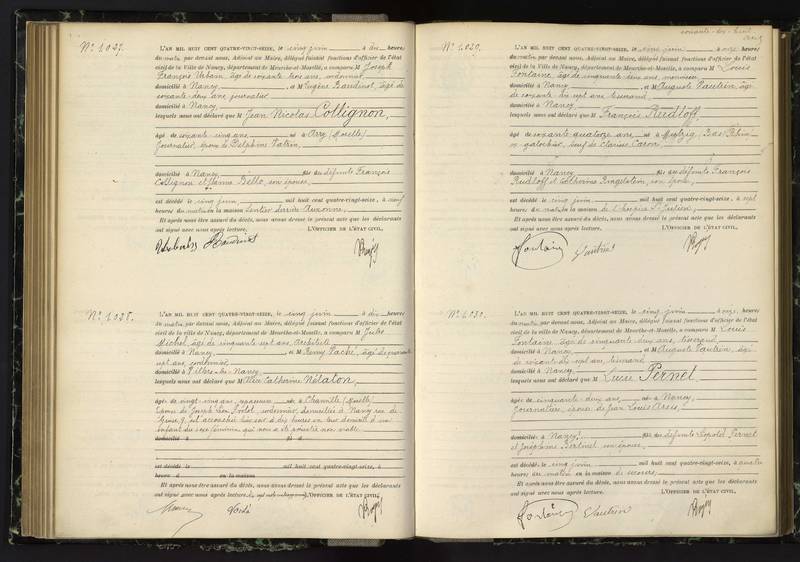 N° 1.027.
L'AN MIL HUIT CENT QUATRE-VINGT-SEIZE, le cinq juin à dix heures
du matin par devant nous, Adjoint au Maire, délégué faisant fonctions d'officier de l'état
civil de la Ville de Nancy, département de Meurthe-et-Moselle, a comparu M Joseph
François Urbain, âgé de soixante trois ans, cordonnier
domicilié à Nancy et M Eugène Baudinot, âgé de
soixante deux ans, journalier
domicilié à Nancy
lesquels nous ont déclaré que M Jean Nicolas Collignon,
âgé de soixante cinq ans né à Arry (Moselle)
journalier, époux de Delphine
domicilié à Nancy fils des défunts François
Collignon et son épouse,
est décédé le cinq juin mil huit cent quatre-vingt-seize, à neuf
heures du matin en la maison sentier derrière Auxonne,
Et après nous être assuré du décès, nous avons dressé le présent acte que les déclarants
ont signé avec nous après lecture. L'OFFICIER DE L'ÉTAT CIVIL,
Baudinot
N° 1.028.
L'AN MIL HUIT CENT QUATRE-VINGT-SEIZE, le cinq juin à dix heures
du matin par devant nous, Adjoint au Maire, délégué faisant fonctions d'officier de l'état
civil de la ville de Nancy, département de Meurthe-et-Moselle, a comparu M Jules
Michel, âgé de cinquante sept ans, architecte
domicilié à Nancy et M Remy Vaché, âgé de quarante
sept ans, cordonnier
domicilié à Villers-les-Nancy
lesquels nous ont déclaré que M Catherine Nélaton,
âgée de vingt-cinq ans, née à Charville (Moselle)
Léon cordonnier, domiciliée à Nancy rue de
9, est accouchée hier soir à dix heures en leur domicile d'un
enfant du sexe féminin qui nous a été présenté non viable
domicilié à fils d
est décédé le mil huit cent quatre-vingt-seize, à
heure d en la maison
Et après nous être assuré du décès, nous avons dressé le présent acte que les déclarants
ont signé avec nous après lecture. L'OFFICIER DE L'ÉTAT CIVIL,
N° 1.029.
L'AN MIL HUIT CENT QUATRE-VINGT-SEIZE, le cinq juin à onze heures
du matin par devant nous, Adjoint au Maire, délégué faisant fonctions d'officier de l'état
civil de la ville de Nancy, département de Meurthe-et-Moselle, a comparu M Louis
Fontaine, âgé de cinquante deux ans, menuisier
domicilié à Nancy et M Auguste Vautrin, âgé
de soixante dix sept ans, tisserand
domicilié à Nancy
lesquels nous ont déclaré que M François Rudloff,
âgé de soixante quatorze ans né à Mutzig, Bas-Rhin
galochier, veuf de Clarisse Caron
domicilié à Nancy fils des défunts François
Rudloff et Catherine Ringelstein, son épouse,
est décédé le cinq juin mil huit cent quatre-vingt-seize, à sept
heures du matin en la maison de l'hospice St Julien,
Et après nous être assuré du décès, nous avons dressé le présent acte que les déclarants
ont signé avec nous après lecture. L'OFFICIER DE L'ÉTAT CIVIL,
Fontaine Vautrin
N° 1.030.
L'AN MIL HUIT CENT QUATRE-VINGT-SEIZE, le cinq juin à onze heures
du matin par devant nous, Adjoint au Maire, délégué faisant fonctions d'officier de l'état
civil de la ville de Nancy, département de Meurthe-et-Moselle, a comparu M Louis
Fontaine, âgé de cinquante deux ans,
domicilié à Nancy et M Auguste Vautrin, âgé
de soixante dix sept ans, tisserand
domicilié à Nancy
lesquels nous ont déclaré que M Lucie Pernet
âgée de cinquante deux ans née à Nancy,
journalière, épouse de Jean Louis
domiciliée à Nancy fille des défunts Léopold Pernet
et Joséphine son épouse,
est décédée le cinq juin mil huit cent quatre-vingt-seize, à quatre
heures du matin en la maison de secours,
Et après nous être assuré du décès, nous avons dressé le présent acte que les déclarants
ont signé avec nous après lecture. L'OFFICIER DE L'ÉTAT CIVIL,
Fontaine Vautrin